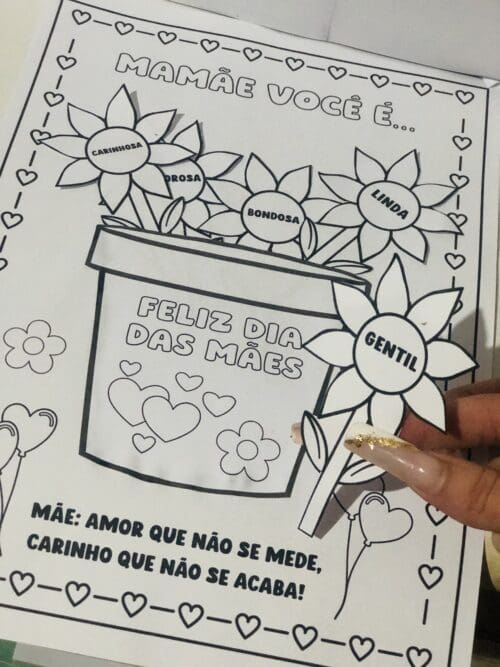 MAMÃE VOCÊ É...
CARINHOSA
BONDOSA
LINDA
GENTIL
FELIZ DIA
DAS MÃES
MÃE: AMOR QUE NÃO SE MEDE,
CARINHO QUE NÃO SE ACABA!